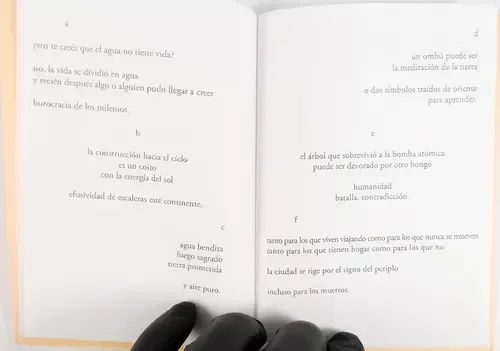 a
¿vos te creés que el agua no tiene vida?
no, la vida se dividió en agua.
y recién después algo o alguien pudo llegar a creer
burocracia de los milenios.
b
la construcción hacia el cielo
es un coito
con la energía del sol
efusividad de escaleras este continente.
c
agua bendita
fuego sagrado
tierra prometida
y aire puro.
d
un ombú puede ser
la meditación de la tierra
o dos símbolos traídos de oriente
para aprender.
e
el árbol que sobrevivió a la bomba atómica
puede ser devorado por otro hongo
humanidad
batalla, contradicción.
f
tanto para los que viven viajando como para los que nunca se mueven
tanto para los que tienen hogar como para los que no
la ciudad se rige por el signo del periplo
incluso para los muertos.